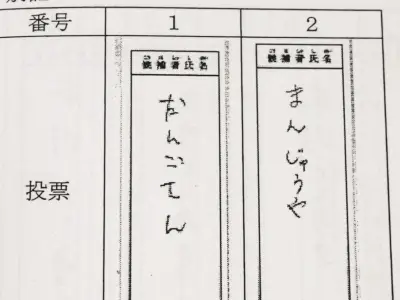 番号 1 2
候補者氏名 候補者氏名
投票
だんごてん
まんじゅうや